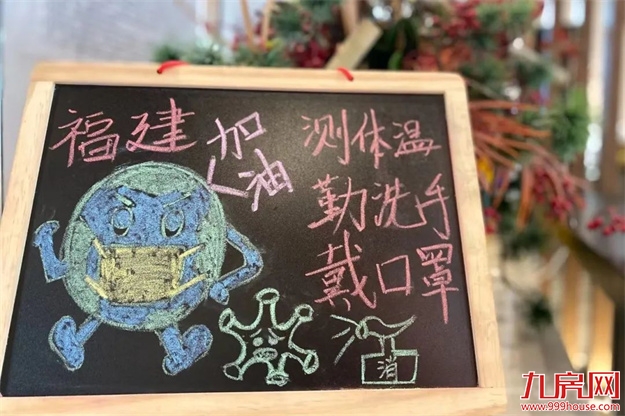 福建
加油
测体温
勤洗手
戴口罩
消
九房网
www.999house.com